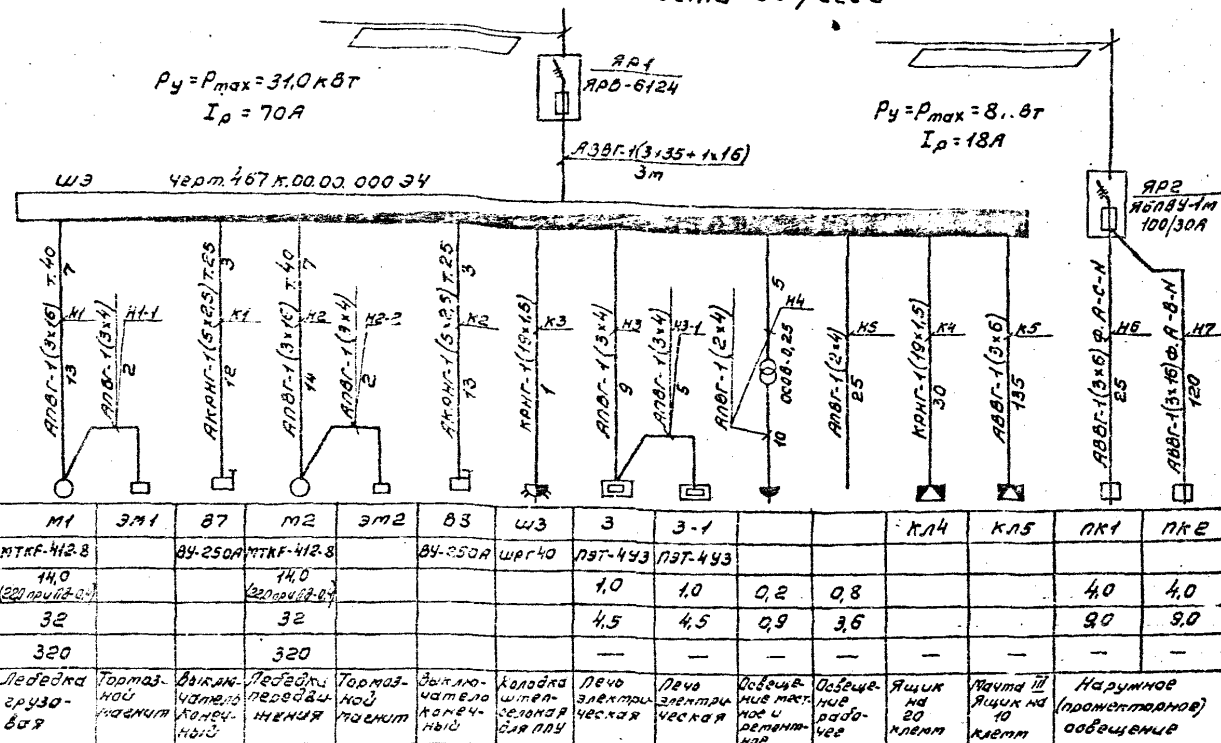 Ру=Рmax=31,0 кВт
Iр = 70А
ЯР1
ЯРВ-6124
Ру=Рmax=8,..Вт
Iр=18А
АЗВГ-1(3×35+1×16)
3м
ШЭ Черт. 467 К.00.00.000 Э4
ЯР2
ЯБПВУ-1м
100/30А
АПВГ-1(3×16) т.40
13 7
Н1
АПВГ-1(3×4)
2
Н1-1
АКРНГ-1(5×2,5) т.25
12 3
К1
АПВГ-1(3×16) т.40
14 7
Н2
АПВГ-1(3×4)
2
Н2-2
АКРНГ-1(5×2,5) т.25
13 3
К2
КРНГ-1(19×1,5)
1
К3
АПВГ-1(3×4)
9
Н3
АПВГ-1(3×4)
5
Н3-1
АПВГ-1(2×4)
10
5
Н4
ОСОВ-0,25
АПВГ-1(2×4)
25
Н5
КРНГ-1(19×1,5)
30
К4
АВВГ-1(3×6)
135
К5
АВВГ-1(3×6) Ф.А-С-N
25
Н6
АВВГ-1(3×16) Ф.А-В-N
120
Н7
М1 ЭМ1 В7 М2 ЭМ2 В3 Ш3 3 3-1 КЛ4 КЛ5 ПК1 ПК2
МТКF-412-8 ВУ-250А МТКF-412-8 ВУ-250А ШРГ40 ПЭТ-4У3 ПЭТ-4У3
14,0 14,0 1,0 1,0 0,2 0,8 4,0 4,0
32 32 4,5 4,5 0,9 3,6 9,0 9,0
320 320 — — — — — —
Лебедка грузовая
Тормозной магнит
Выключатель конечный
Лебедка передвижения
Тормозной магнит
Выключатель конечный
Колодка штепсельная для ППУ
Печь электрическая
Печь электрическая
Освещение местное и ремонтное
Освещение рабочее
Ящик на 20 клемм
Мачта III Ящик на 10 клемм
Наружное (прожекторное) освещение